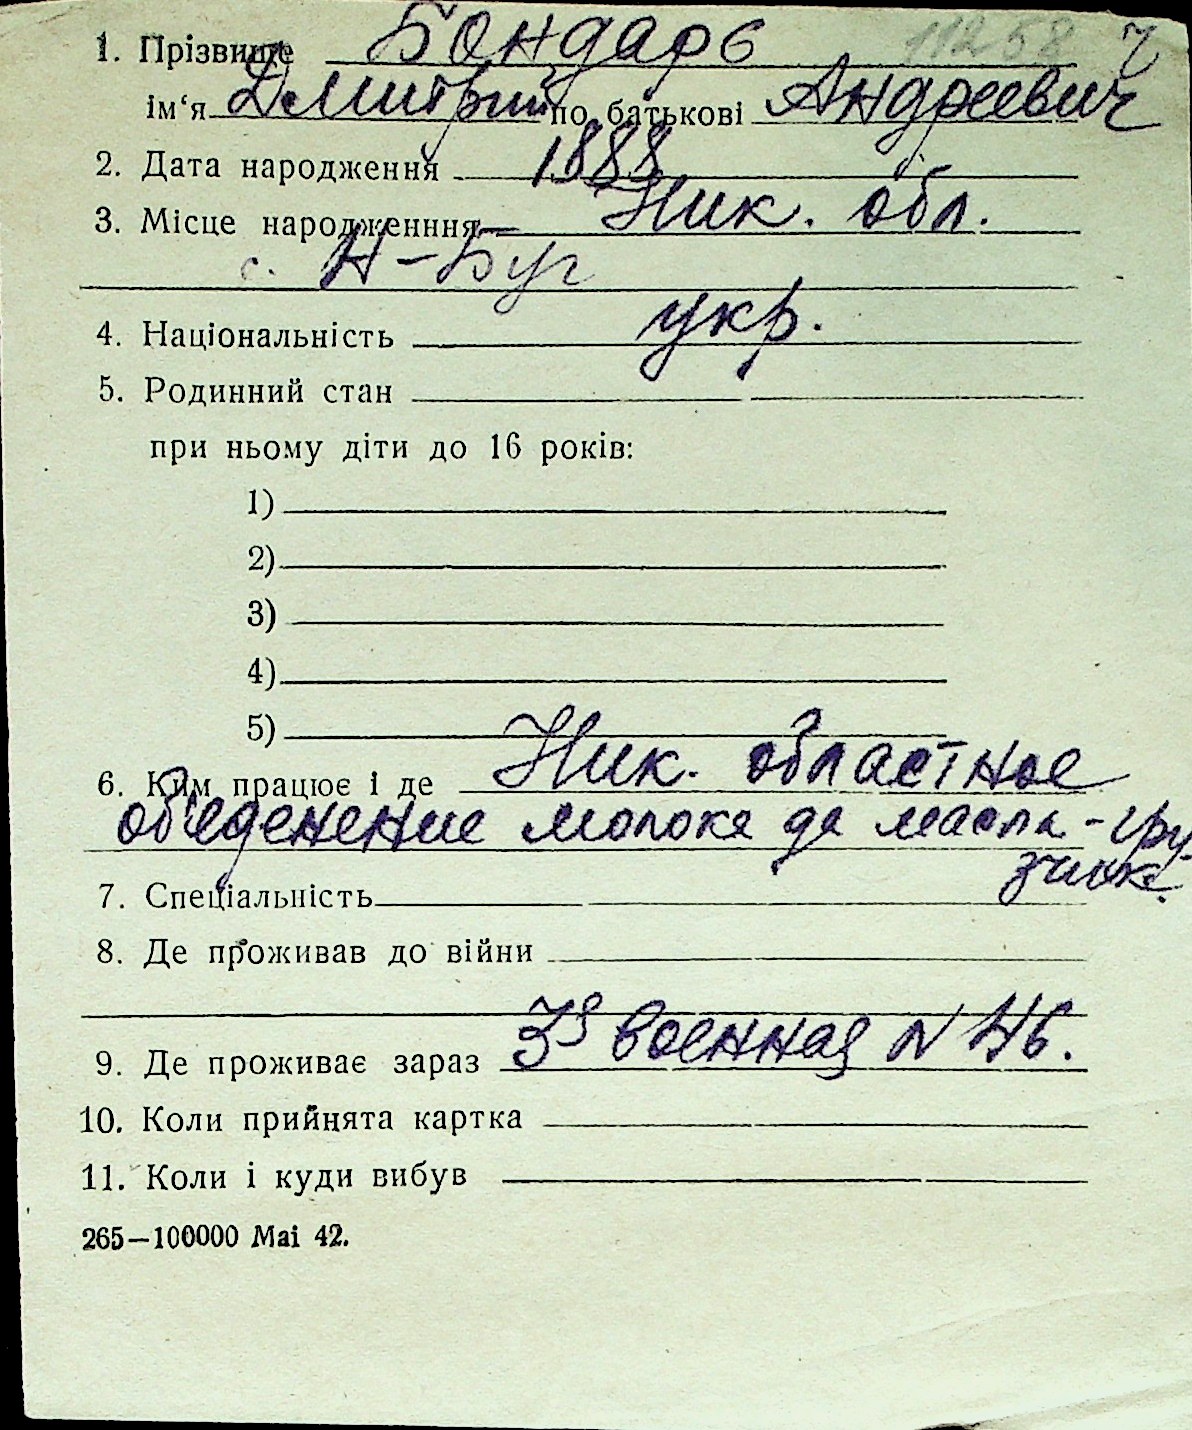 1. Прізвище Бондарь 11258 ч
ім‘я Дмитрий по батькові Андреевич
2. Дата народження 1888
3. Місце народженння Ник. обл.
с. Н-Буг
4. Національність укр.
5. Родинний стан
при ньому діти до 16 років:
1)
2)
3)
4)
5)
6. Ким працює і де Ник. областное
об'еденение молока да масла - гру-
зчик.
7. Спеціальність
8. Де проживав до війни
9. Де проживає зараз 3я военная N 46.
10. Коли прийнята картка
11. Коли і куди вибув
265—100000 Mai 42.